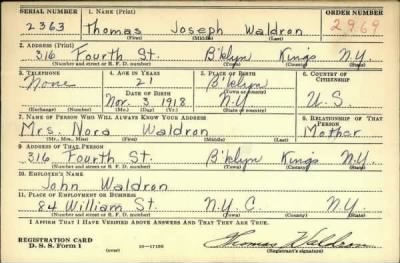 SERIAL NUMBER 1. NAME (Print) ORDER NUMBER
2363 Thomas Joseph Waldron 2969
(First) (Middle) (Last)
2. ADDRESS (Print)
316 Fourth St. B'klyn Kings N.Y.
(Number and street or R. F. D. number) (Town) (County) (State)
3. TELEPHONE 4. AGE IN YEARS 5. PLACE OF BIRTH 6. COUNTRY OF CITIZENSHIP
None 21 B'klyn
DATE OF BIRTH (Town or county)
Nov. 3, 1918 N.Y U.S.
(Exchange) (Number) (Mo.) (Day) (Yr.) (State or country)
7. NAME OF PERSON WHO WILL ALWAYS KNOW YOUR ADDRESS 8. RELATIONSHIP OF THAT PERSON
Mrs. Nora Waldron Mother
(Mr., Mrs., Miss) (First) (Middle) (Last)
9. ADDRESS OF THAT PERSON
316 Fourth St. B'klyn Kings N.Y.
(Number and street or R. F. D. number) (Town) (County) (State)
10. EMPLOYER'S NAME
John Waldron
11. PLACE OF EMPLOYMENT OR BUSINESS
84 William St. N.Y.C. N.Y.
(Number and street or R. F. D. number) (Town) (County) (State)
I AFFIRM THAT I HAVE VERIFIED ABOVE ANSWERS AND THAT THEY ARE TRUE.
REGISTRATION CARD
D. S. S. Form 1 16—17105 Thomas Waldron
(Registrant's signature)